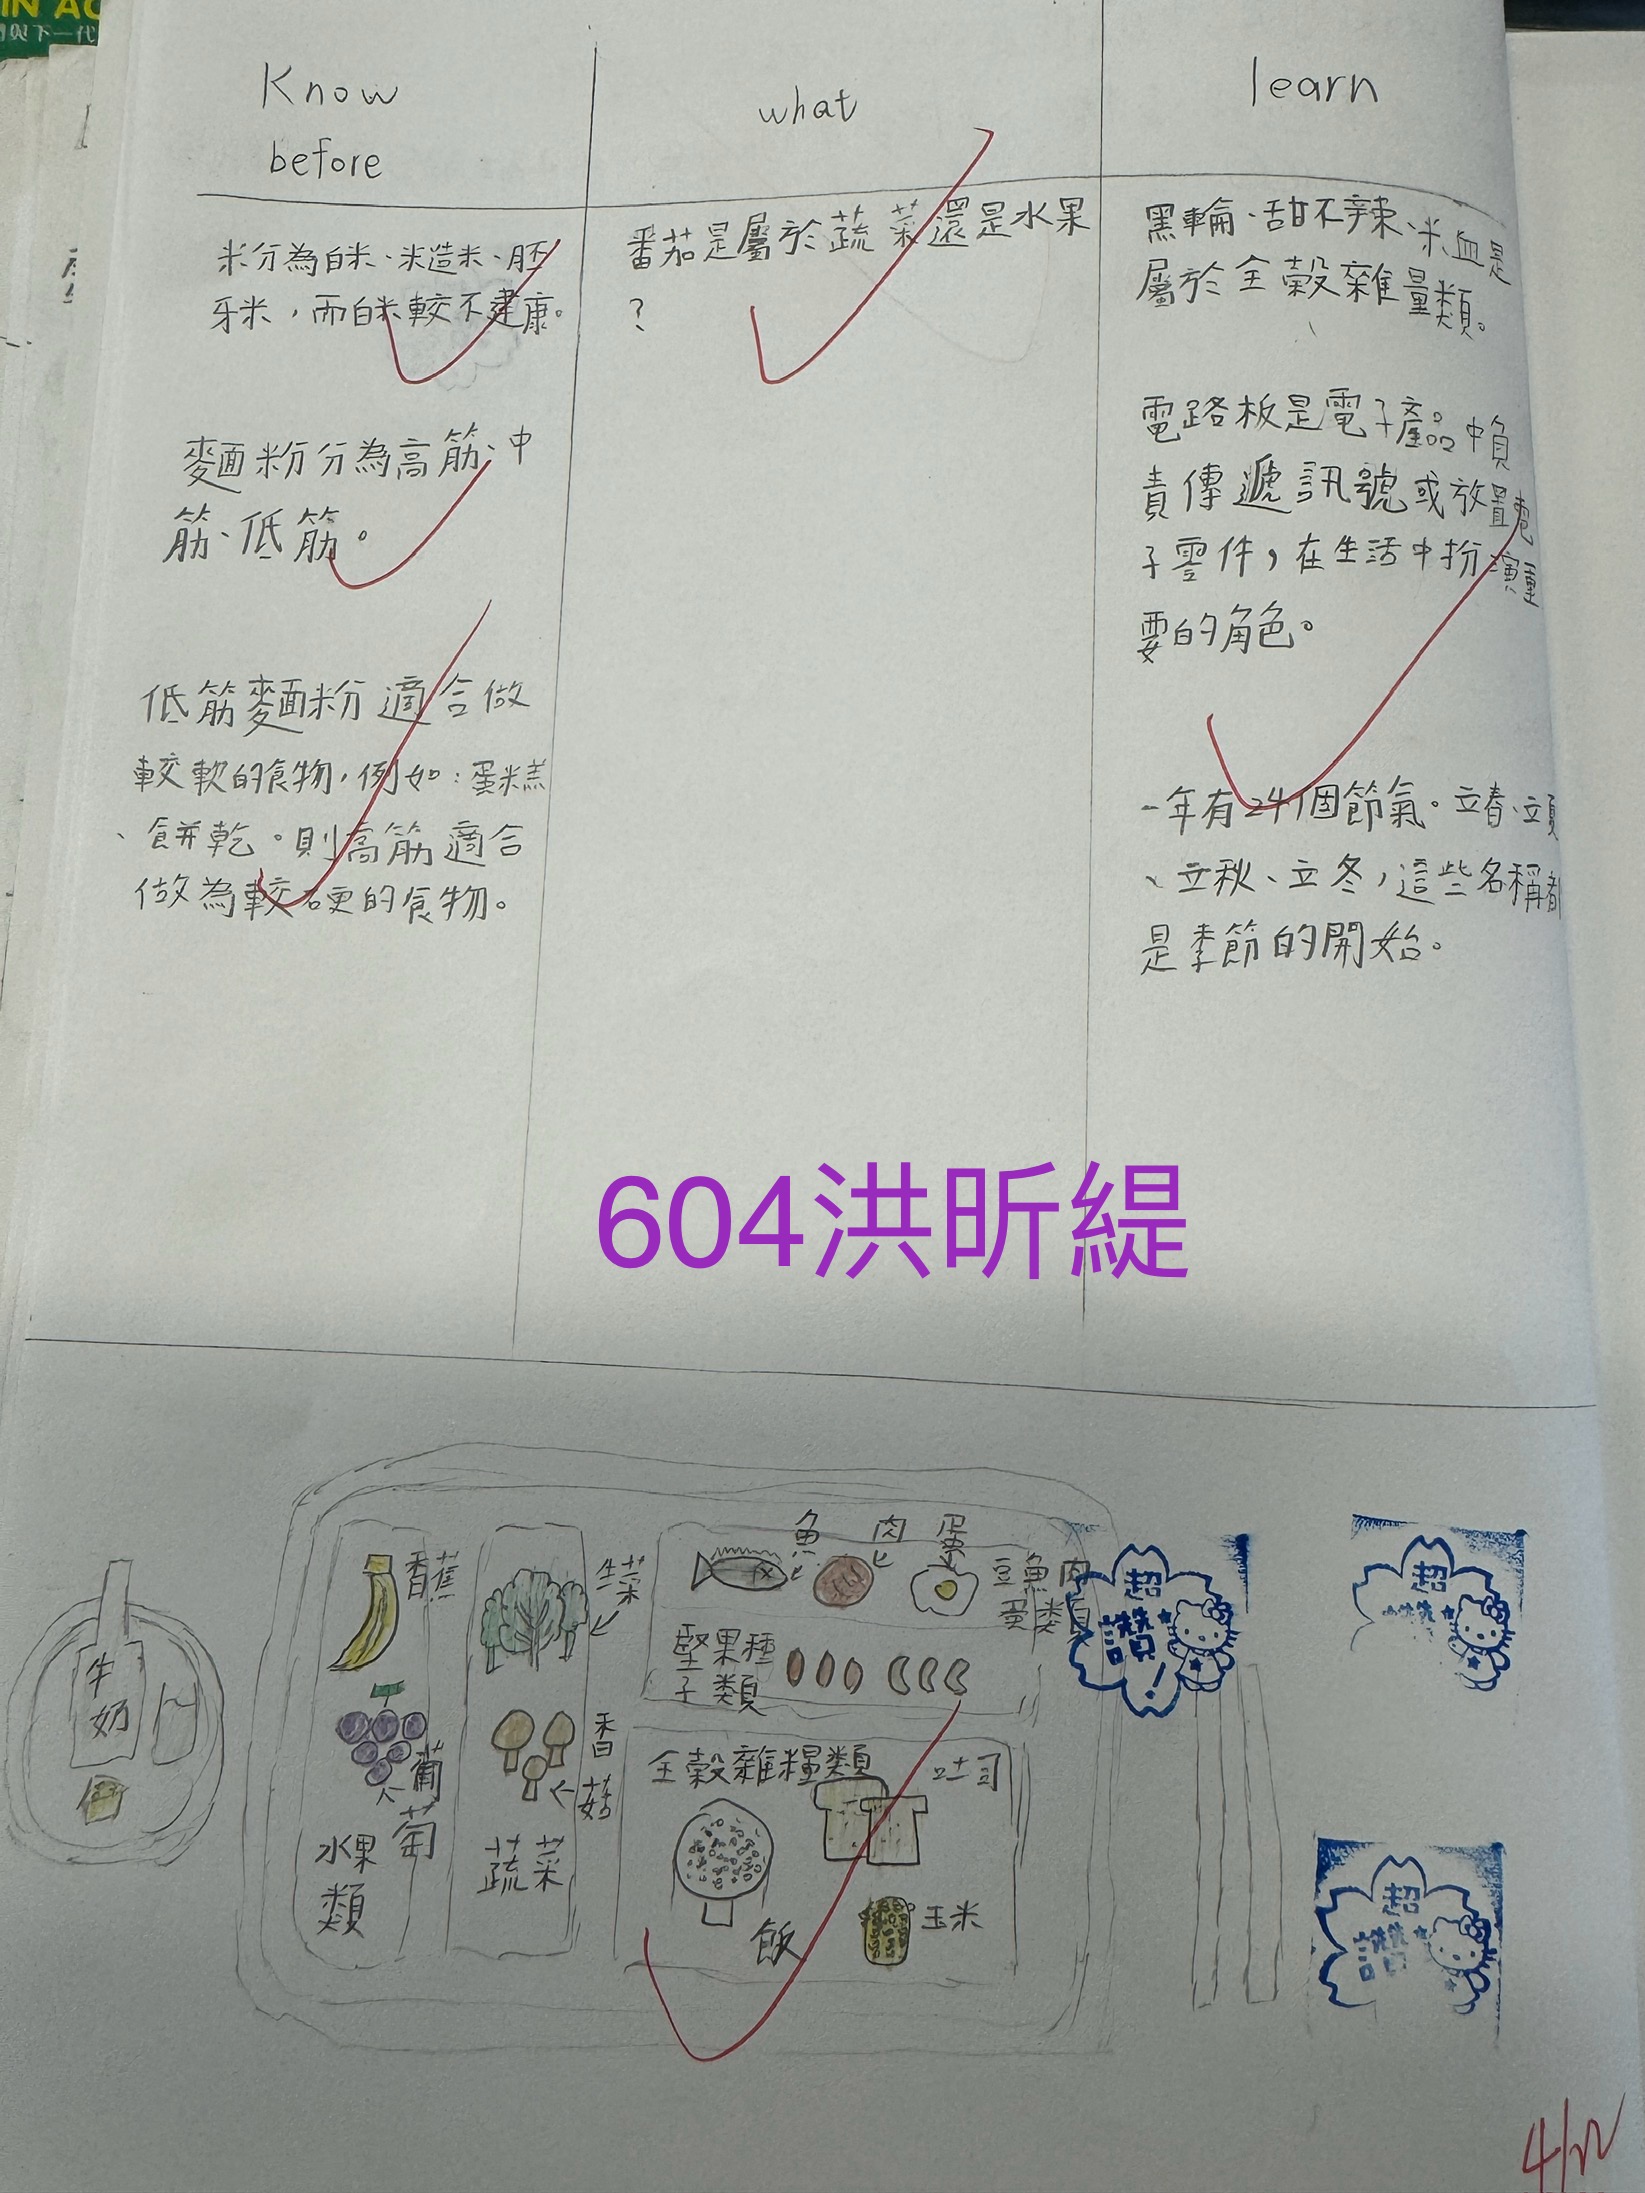 IN AC
與下一代
Know
before
what
learn
米分為白米、糙米、胚
牙米，而白米較不建康。
麵粉分為高筋、中
筋、低筋。
低筋麵粉適合做
較軟的食物，例如：蛋糕
、餅乾。則高筋適合
做為較硬的食物。
番茄是屬於蔬菜還是水果
？
黑輪、甜不辣、米血是
屬於全穀雜量類。
電路板是電子產品中負
責傳遞訊號或放置電
子零件，在生活中扮演重
要的角色。
一年有24個節氣。立春、立夏
、立秋、立冬，這些名稱都
是季節的開始。
604洪昕緹
牛
奶
香蕉
葡
萄
水果
類
生菜
香
菇
蔬菜
魚
肉
蛋
豆魚肉
蛋類
堅果種
子類
全穀雜糧類
吐司
飯
玉米
超
讚！
超
讚
超
讚
4/22